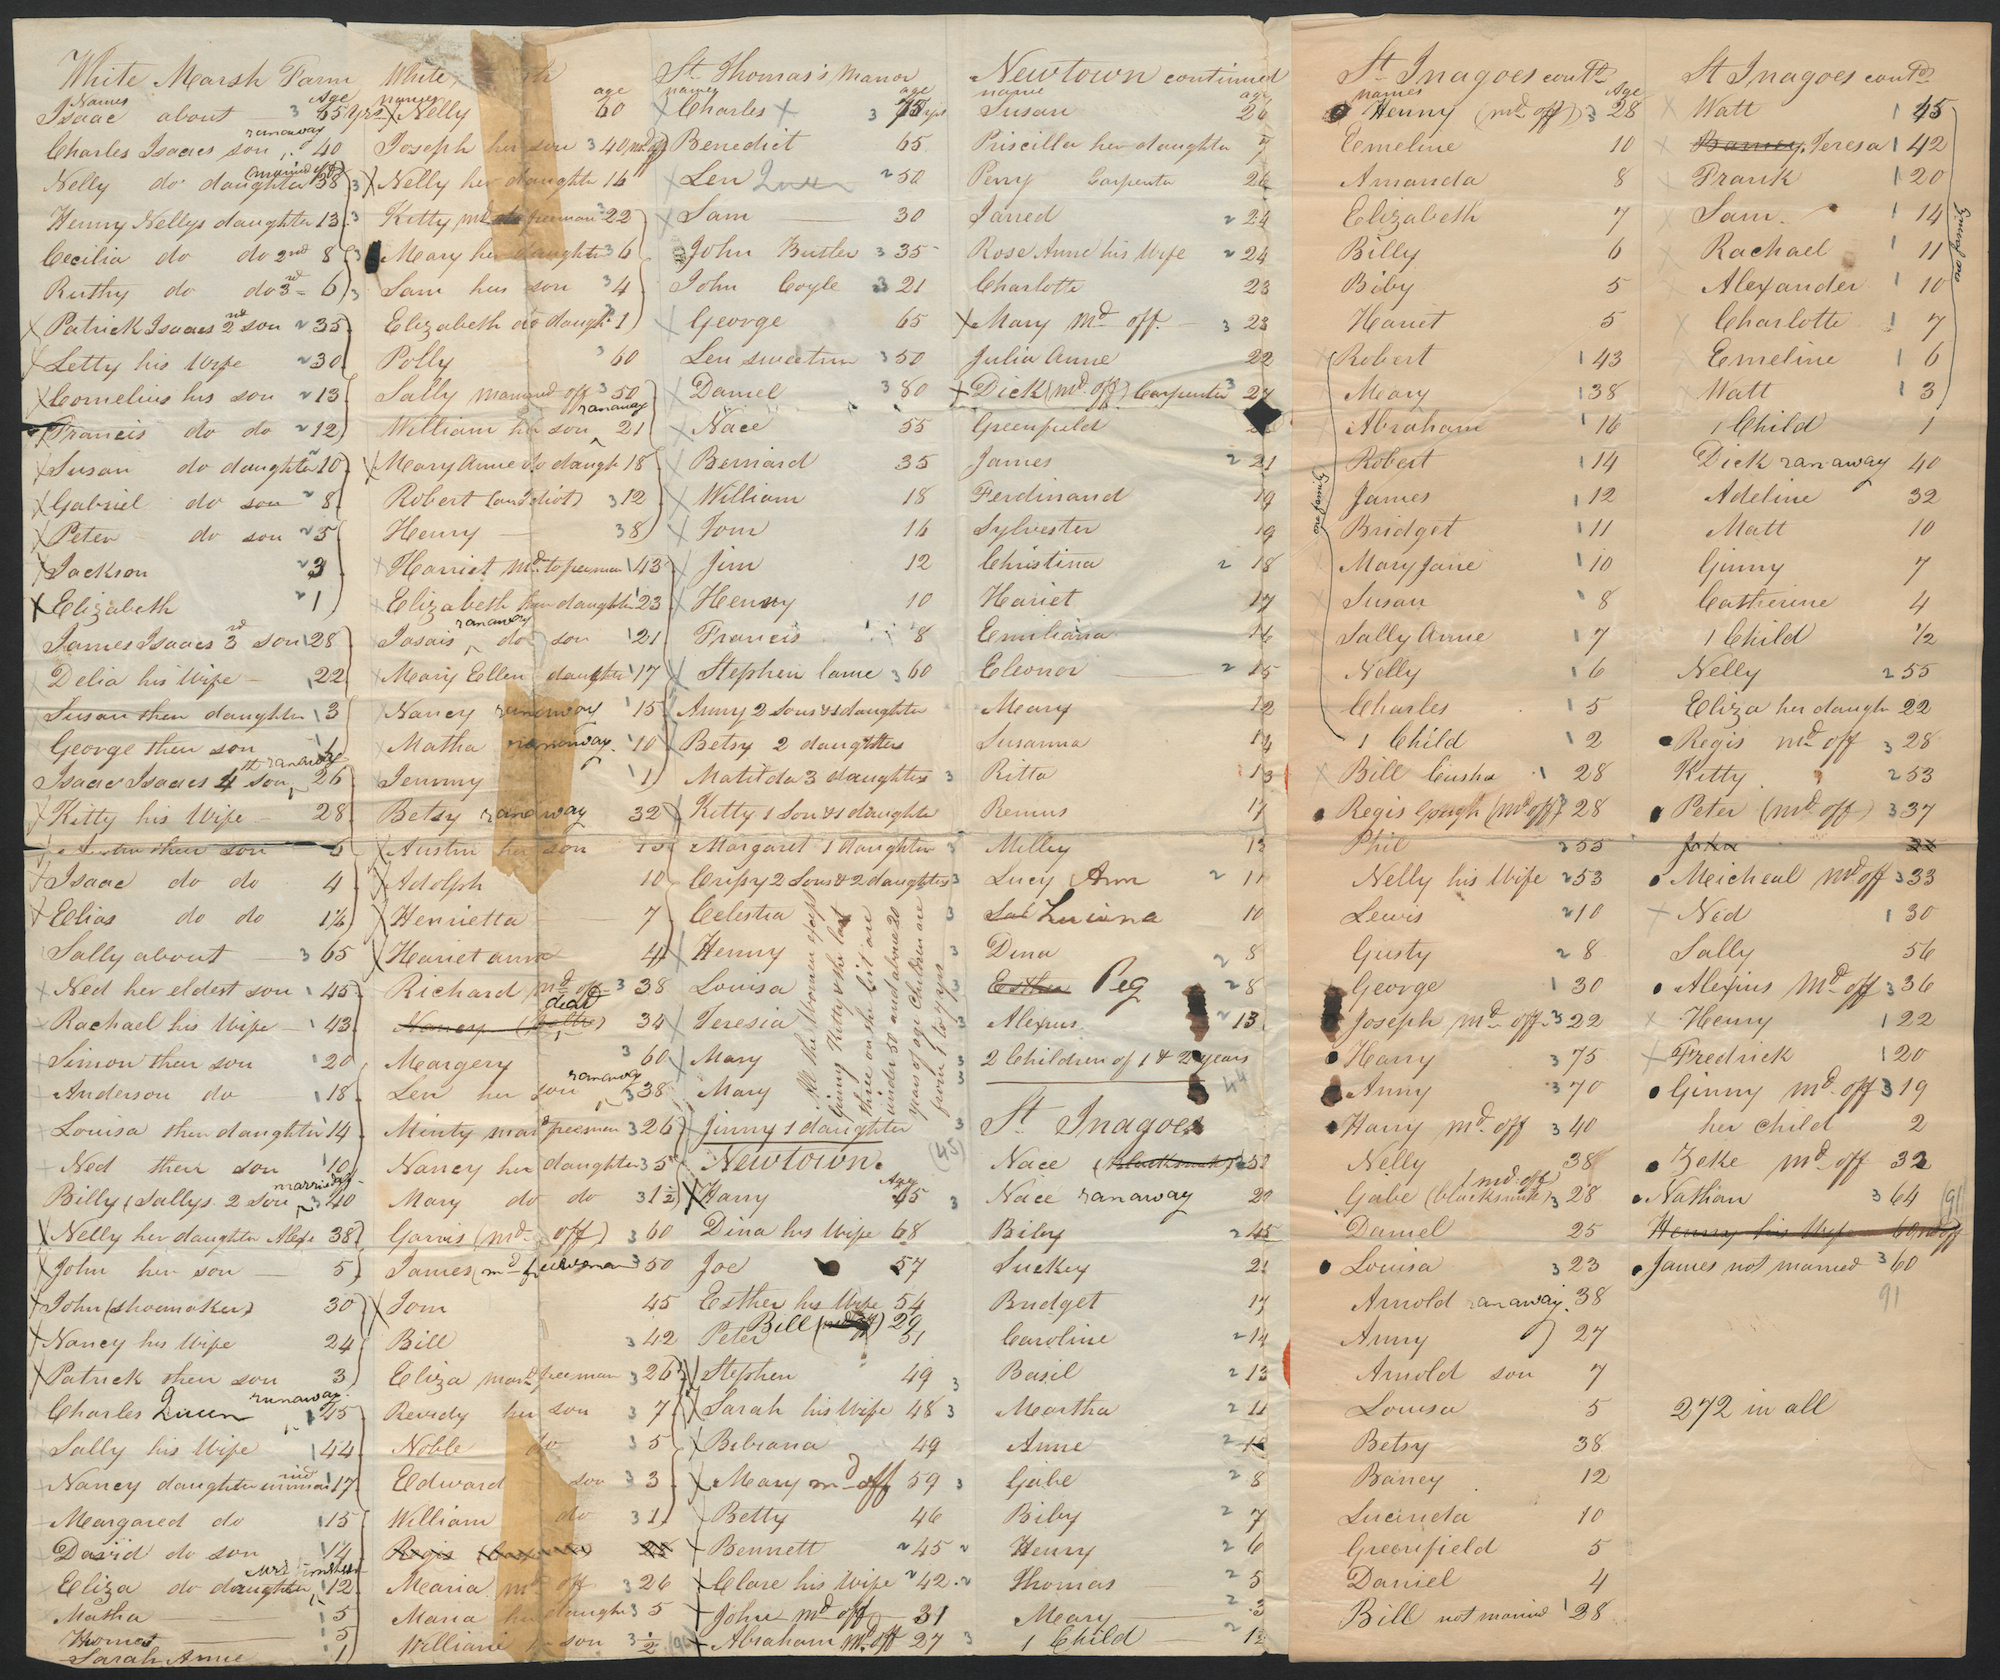 White Marsh Farm
Names Age
Isaac about 3 65 yrs
runaway
Charles Isaacs son 40
married off
Nelly do daughter 38
Henny Nellys daughter 13
Cecilia do do 2nd 8
Ruthy do do 3rd 6
Patrick Isaacs 2nd son 2 35
Letty his Wife 2 30
Cornelius his son 2 13
Francis do do 2 12
Susan do daughter 10
Gabriel do son 2 8
Peter do son 2 5
Jackson 2 3
Elizabeth 2 1
James Isaacs 3rd son 1 28
Delia his Wife 1 22
Susan their daughter 1 3
George their son 1
runaway
Isaac Isaacs 4th son 26
Kitty his Wife 28
Austin their son
Isaac do do 4
Elias do do 1½
Sally about 3 65
Ned her eldest son 1 45
Rachael his Wife 1 43
Simon their son 1 20
Anderson do 1 18
Louisa their daughter 1 14
Ned their son 1 10
married
Billy (Sallys 2 Son 3 40
Nelly her daughter 38
John her son 5
John (shoemaker) 30
Nancy his Wife 24
Patrick their son 3
runaway
Charles Queen 1 45
Sally his Wife 1 44
Nancy daughter 1 17
Margared do 1 15
David do son 1 14
Eliza do daughter 1 12
Matha 1 5
Thomas 1 5
Sarah Anne 1
White
names age
Nelly 60
Joseph her son 3 40 md off
Nelly her daughter 16
Kitty md freeman 22
Mary her daughter 3 6
Sam her son 3 4
Elizabeth do daugh. 1
Polly 3 60
Sally married off 3 50
runaway
William her son 21
Mary Anne do daugh 18
Robert (an Idiot) 3 12
Henry 3 8
Harriet md. to freeman 1 43
Elizabeth her daughter 1 23
runaway
Isais do son 1 21
Mary Ellen daughter 1 17
Nancy runaway 1 15
Matha runaway 1 10
Jemmy 1 1
Betsy runaway 32
Austin her son 15
Adolph 10
Henrietta 7
Hariet anna 4
Richard md off 3 38
dead
Nancy 34
Margery 3 60
runaway
Len her son 3 38
Minty mard freeman 3 26
Nancy her daughter 3 5
Mary do do 3 1½
Garvis (md off) 3 60
James (md freewoman 3 50
Tom 45
Bill 3 42
Eliza mard freeman 3 26
Reverdy her son 3 7
Noble do 3 5
Edward son 3 3
William do 3 1
Regis 28
Maria md off 3 26
Maria her daugh 3 5
William son 3 ½
St. Thomas's Manor
names age
Charles 3 75 yrs
Benedict 65
Len Queen 2 50
Sam 30
John Butler 3 35
John Coyle 3 21
George 65
Len sweeton 3 50
Daniel 3 80
Nace 55
Bernard 35
William 18
Tom 16
Jim 12
Henry 10
Francis 8
Stephen lame 3 60
Anny 2 Sons & 1 daughter
Betsy 2 daughters
Matilda 3 daughters 3
Kitty 1 Son & 1 daughter
Margaret 1 daughter 3
Crissy 2 Sons & 2 daughters 3
Celestia 3
Henny 3
Louisa 3
Teresia 3
Mary 3
Mary 3
Jinny 1 daughter 3
All the Women except
Ginny Kitty & the last
three on the list are
under 50 and above 20
years of age Children are
from 1 to 9 yrs
(45)
Newtown.
Age
Harry 65
Dina his Wife 68
Joe 57
Esther his Wife 54
Bill 29
Peter 51
Stephen 49
Sarah his Wife 48
Bibiana 49
Mary md off 59
Betty 46
Bennett 2 45
Clare his Wife 2 42
John md off 31
Abraham md off 27
Newtown continued
name age
Susan 26
Priscilla her daughter 7
Perry Carpenter 26
Jarred 2 24
Rose Anne his Wife 2 24
Charlotte 23
Mary md off. 3 23
Julia Anne 22
Dick (md off) Carpenter 3 27
Greenfield
James 2 21
Ferdinand 19
Sylvester 19
Christina 2 18
Hariet 17
Emiliana 16
Eleonor 2 15
Mary 12
Susanna 14
Ritta 13
Remus 11
Milley 13
Lucy Ann 2 11
Luciana 10
Dina 2 8
Esther Peg 2 8
Alexius 2 13
2 Children of 1 & 2 years
44
St. Inagoes
Nace (blacksmith) 2 50
Nace runaway 20
Biby 2 45
Suckey 21
Bridget 17
Caroline 2 14
Basil 2 13
Martha 2 11
Anne 2 10
Gabe 2 8
Biby 2 7
Henry 2 6
Thomas 2 5
Mary 2 3
1 Child 2 1½
St Inagoes contd.
names Age
Henny (md off) 3 28
Emeline 10
Amanda 8
Elizabeth 7
Billy 6
Biby 5
Hariet 5
Robert 1 43
Mary 1 38
Abraham 1 16
Robert 1 14
James 1 12
Bridget 1 11
Mary Jane 1 10
Susan 1 8
Sally Anne 1 7
Nelly 1 6
Charles 1 5
1 Child 1 2
one family
Bill Cush 1 28
Regis Gough (md off) 3 28
Phil 2 55
Nelly his Wife 2 53
Lewis 2 10
Gusty 2 8
George 1 30
Joseph md off 3 22
Harry 3 75
Anny 3 70
Harry md off 3 40
Nelly 38
(md off)
Gabe (blacksmith) 3 28
Daniel 25
Louisa 3 23
Arnold ranaway. 38
Anny 27
Arnold son 7
Louisa 5
Betsy 38
Baney 12
Lucinda 10
Greenfield 5
Daniel 4
Bill not married 1 28
St Inagoes contd
Watt 1 45
Barney. Teresa 1 42
Frank 1 20
Sam. 1 14
Rachael 1 11
Alexander 1 10
Charlotte 1 7
Emeline 1 6
Watt 1 3
one family
1 Child 1
Dick ranaway 40
Adeline 32
Matt 10
Ginny 7
Catherine 4
1 Child 1/2
Nelly 2 55
Eliza her daugh 22
Regis md off 3 28
Kitty 2 53
Peter (md off) 3 37
John 22
Meicheal md off 3 33
Ned 1 30
Sally 56
Alexius Md off 3 36
Henny 1 22
Fredrick 1 20
Ginny md off 3 19
her child 2
Zeke md off 32
Nathan 3 64
Henny his Wife 60 md off
James not married 3 60
91
272 in all